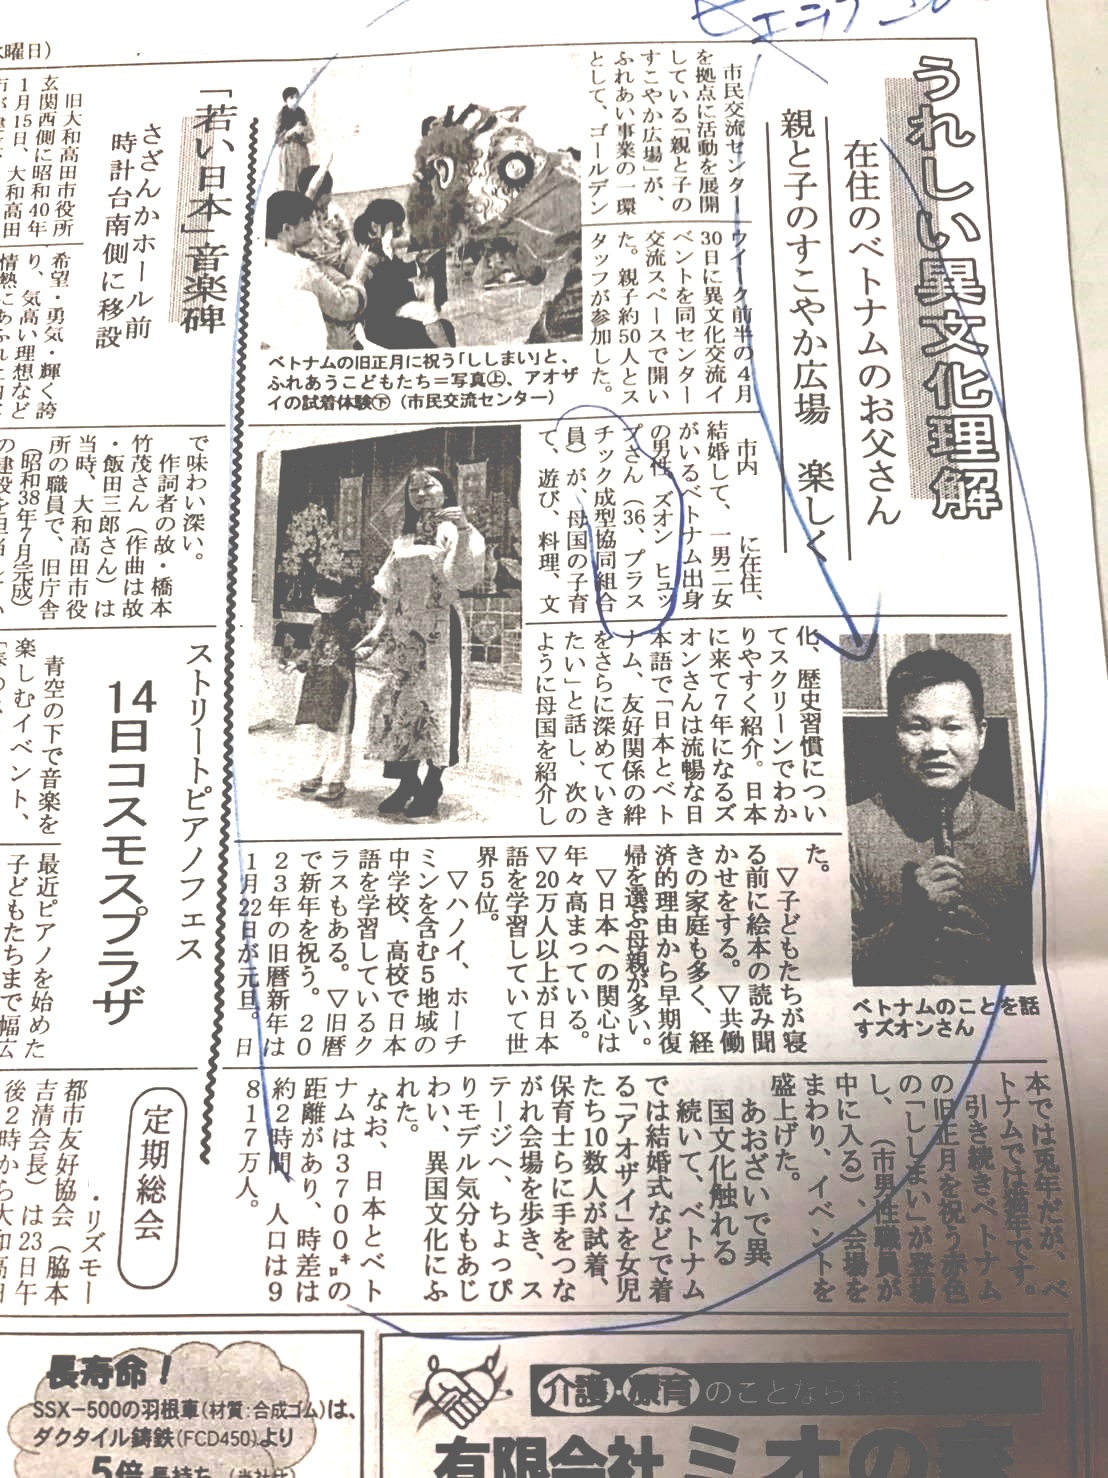 うれしい異文化理解
在住のベトナムのお父さん
親と子のすこやか広場 楽しく
市民交流センター
を拠点に活動を展開
している「親と子の
すこやか広場」が、
ふれあい事業の一環
として、ゴールデン
ウイーク前半の4月
30日に異文化交流イ
ベントを同センター
交流スペースで開い
た。親子約50人とス
タッフが参加した。
ベトナムの旧正月に祝う「ししまい」と、
ふれあうこどもたち=写真㊤、アオザ
イの試着体験㊦(市民交流センター)
市内 に在住、
結婚して、一男二女
がいるベトナム出身
の男性 ズオン ヒュッ
プさん(36、プラス
チック成型協同組合
員)が、母国の子育
て、遊び、料理、文
化、歴史習慣につい
てスクリーンでわか
りやすく紹介。日本
に来て7年になるズ
オンさんは流暢な日
本語で「日本とベト
ナム、友好関係の絆
をさらに深めていき
たい」と話し、次の
ように母国を紹介し
た。
ベトナムのことを話
すズオンさん
▽子どもたちが寝
る前に絵本の読み聞
かせをする。▽共働
きの家庭も多く、経
済的理由から早期復
帰を選ぶ母親が多い。
▽日本への関心は
年々高まっている。
▽20万人以上が日本
語を学習していて世
界5位。
▽ハノイ、ホーチ
ミンを含む5地域の
中学校、高校で日本
語を学習しているク
ラスもある。▽旧暦
で新年を祝う。20
23年の旧暦新年は
1月22日が元旦。日
本では兎年だが、ベ
トナムでは猫年です。
引き続きベトナム
の旧正月を祝う赤色
の「ししまい」が登場
し、(市男性職員が
中に入る)、会場を
まわり、イベントを
盛上げた。
あおざいで異
国文化触れる
続いて、ベトナム
では結婚式などで着
る「アオザイ」を女児
たち10数人が試着、
保育士らに手をつな
がれ会場を歩き、ス
テージへ、ちょっぴ
りモデル気分もあじ
わい、異国文化にふ
れた。
なお、日本とベト
ナムは3700㌔の
距離があり、時差は
約2時間、人口は9
817万人。
「若い日本」音楽碑
さざんかホール前
時計台南側に移設
旧大和高田市役所
玄関西側に昭和40年
1月15日、大和高田
希望・勇気・輝く誇
り、気高い理想など
で味わい深い。
作詞者の故・橋本
竹茂さん(作曲は故
・飯田三郎さん)は
当時、大和高田市役
所の職員で、旧庁舎
(昭和38年7月完成)
ストリートピアノフェス
14日コスモスプラザ
青空の下で音楽を
楽しむイベント、
最近ピアノを始めた
子どもたちまで幅広
定期総会
・リズモー
都市友好協会(脇本
吉清会長)は23日午
後2時から大和高田
長寿命!
SSX-500の羽根車(材質:合成ゴム)は、
ダクタイル鋳鉄(FCD450)より
5倍長持ち
介護・療育のことなら
有限会社ミオの森